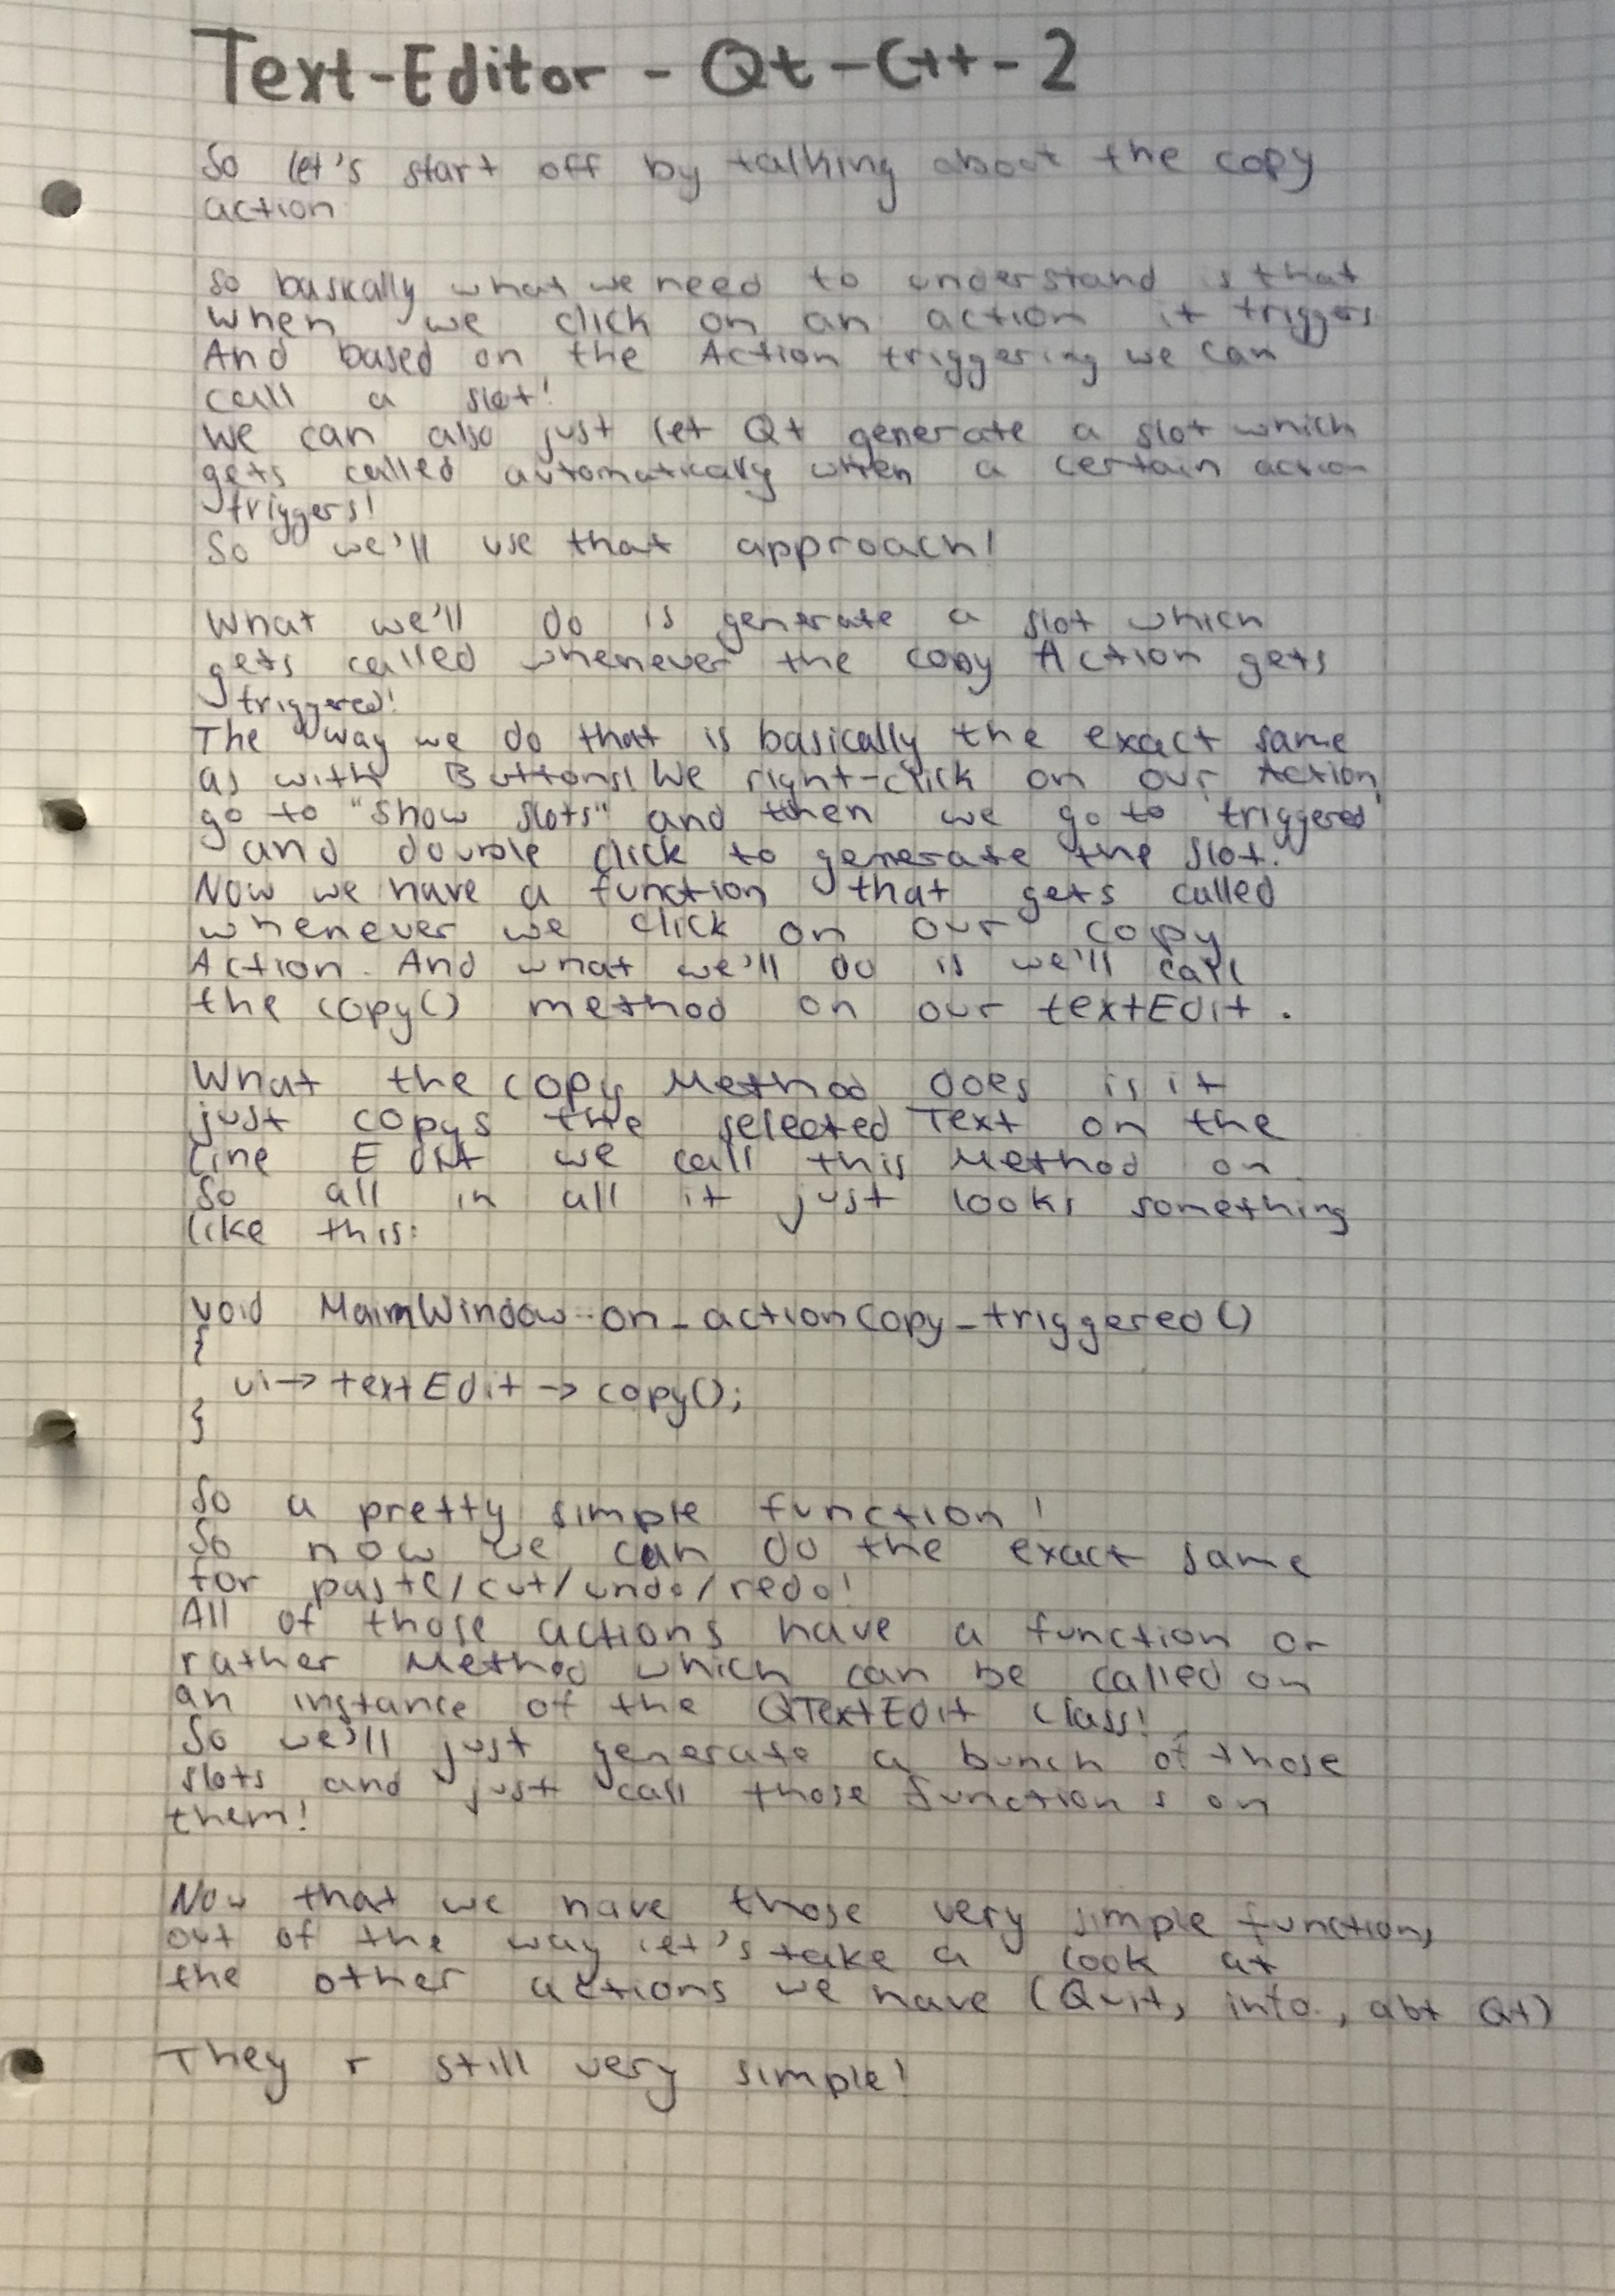 Text-Editor - Qt-C++-2
So let's start off by talking about the copy
action
So basically what we need to understand is that
when we click on an action it triggers
And based on the Action triggering we can
call a slot!
We can also just let Qt generate a slot which
gets called automatically when a certain action
triggers!
So we'll use that approach!
What we'll do is generate a slot which
gets called whenever the copy Action gets
triggered!
The way we do that is basically the exact same
as with Buttons! We right-click on our Action
go to "show slots" and then we go to "triggered"
and double click to generate the slot.
Now we have a function that gets called
whenever we click on our copy
Action. And what we'll do is we'll call
the copy() method on our textEdit.
What the copy Method does is it
just copys the selected Text on the
Line Edit we call this Method on
So all in all it just looks something
like this:
void MainWindow::on_actionCopy_triggered()
{
ui->textEdit->copy();
}
So a pretty simple function!
So now we can do the exact same
for paste/cut/undo/redo!
All of those actions have a function or
rather Method which can be called on
an instance of the QTextEdit class!
So we'll just generate a bunch of those
slots and just call those functions on
them!
Now that we have those very simple functions
out of the way let's take a look at
the other actions we have (Quit, info, abt Qt)
They r still very simple!